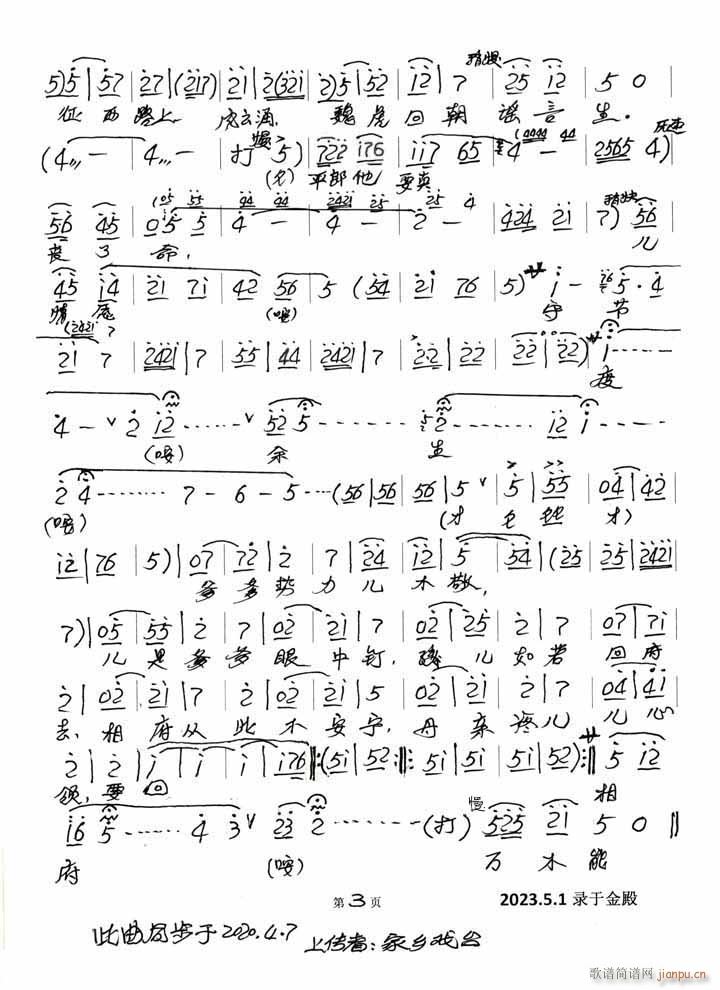 5) 5 | 57 | 27 | (217) | 21 | 2 (321 | 2) 5 | 52 | 12 | 7 | 稍慢 25 12 | 5 0
征西路上 风云涌, 魏虎回朝谣言生.
(4,,, — | 4,,, — | 打 慢 5) | 722 176 | 117 65 | 4 — | 2565 4)
(白) 平郎他 要真
56 45 | 05 5 | 4 — | 4 — | 2 — | 424 21 | 7) 稍快 56
丧了命, 儿
45 14 | 21 71 | 42 56 | 5 (54 | 21 76 | 5) サ 1 — 5·4
情愿 (嗯) 守节
21 7 | 2421 | 7 | 55 | 44 | 2421 | 7 | 22 | 22 | 22 | 22) サ 1 ----
度
4 — ∨ 2 12 ······ ∨ 52 5 ---- 2 ------ 12 1 ----
(嗯) 余 生
2 4 ········ 7 — 6 — 5 ···· (56 | 56 | 56 | 5 ∨ | 5 | 55 | 04 | 42
(嗯) (才 七 才)
12 | 76 | 5) | 07 | 72 | 2 | 7 | 24 | 12 | 5 | 54 | (25 | 25 | 2421
爹爹势力儿不敬,
7) | 05 | 55 | 2 | 7 | 02 | 21 | 7 | 02 | 25 | 2 | 7 | 07 | 71
儿是爹爹眼中钉, 儿如若回府
2 | 02 | 21 | 7 | 02 | 21 | 5 | 02 | 21 | 2 | 7 | 04 | 41
去, 相府从此不安宁, 丹亲疼儿儿心
2 | 2 | 1 | 1 | 1 | 176 ‖: (51 | 52 :‖ 51 | 51 | 51 | 52) :‖ サ 5 12
领, 要回 相
16 5 ······ 4 3 ∨ 23 2 ········· (打) 慢 525 21 5 0 ‖
府 (嗯) 万不能
第 3 页
2023.5.1 录于金殿
此曲同步于2020.4.7 上传者:家乡戏台
歌谱简谱网
jianpu.cn